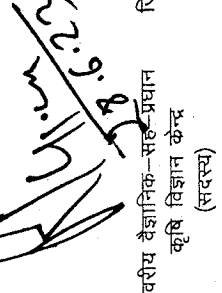 8.6.22
वरीय वैज्ञानिक–सह–प्रधान
कृषि विज्ञान केन्द्र
(सदस्य)